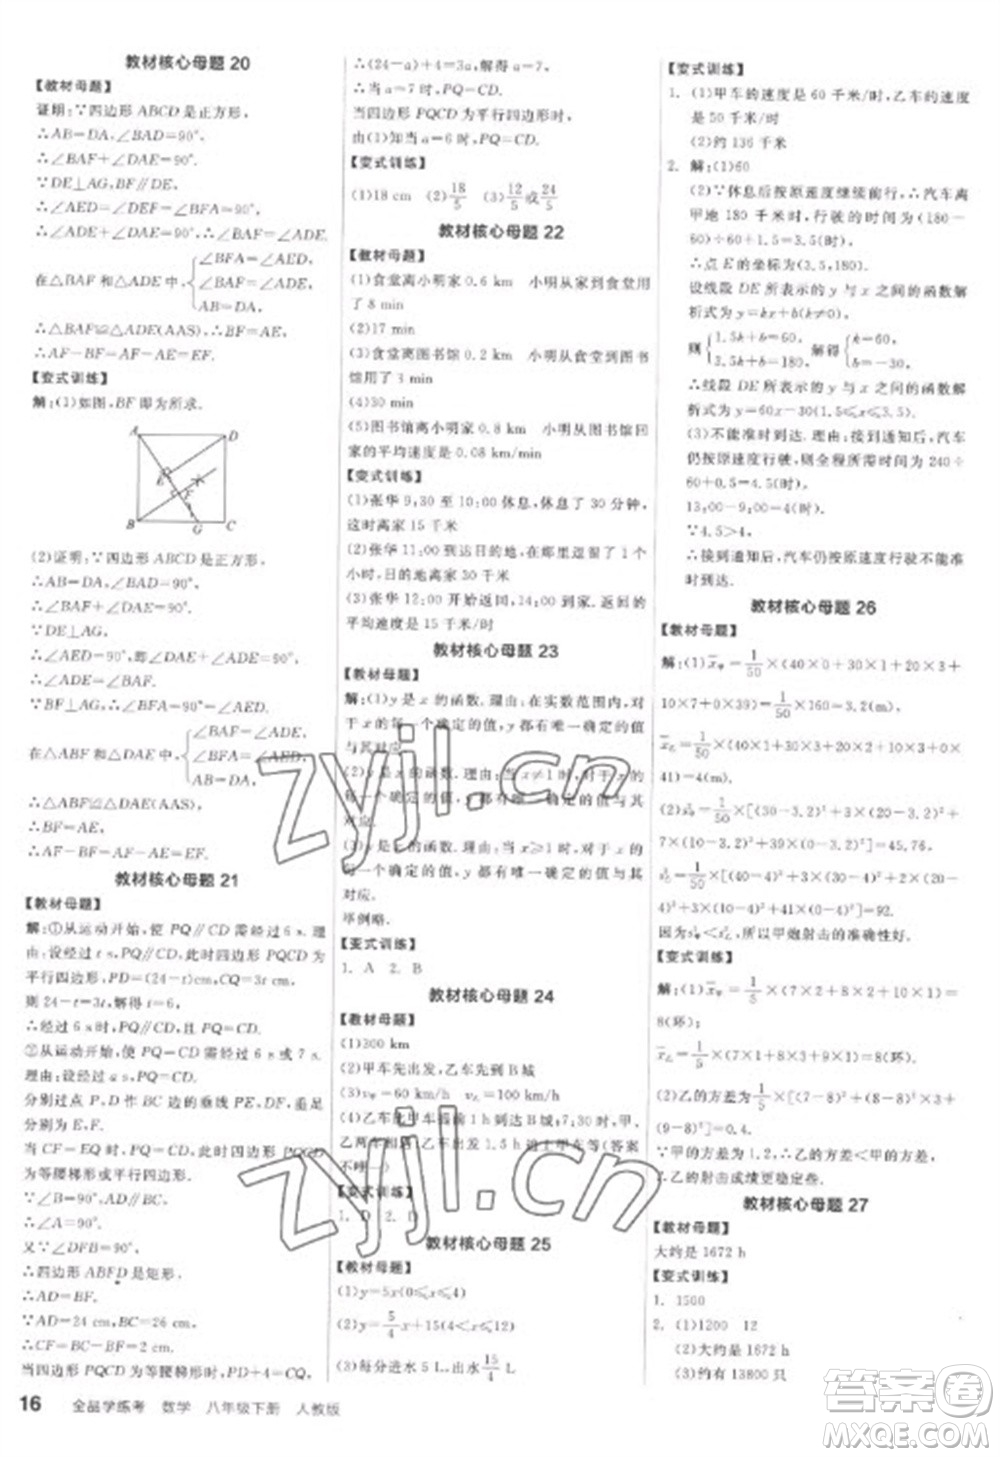 教材核心母题 20
【教材母题】
证明:∵四边形 ABCD 是正方形,
∴AB=DA,∠BAD=90°.
∴∠BAF+∠DAE=90°.
∵DE⊥AG,BF∥DE,
∴∠AED=∠DEF=∠AFB=90°.
∴∠ADE+∠DAE=90°,∴∠BAF=∠ADE.
在△BAF和△ADE中, ∠BFA=∠AED,
∠BAF=∠ADE,
AB=DA,
∴△BAF≌△ADE(AAS).∴BF=AE.
∴AF-BF=AF-AE=EF.
【变式训练】
解:(1)如图,BF 即为所求.
A D
E F
B G C
(2)证明:∵四边形 ABCD 是正方形,
∴AB=DA,∠BAD=90°.
∴∠BAF+∠DAE=90°.
∵DE⊥AG,
∴∠AED=90°,即∠DAE+∠ADE=90°.
∴∠ADE=∠BAF.
∵BF⊥AG,∴∠BFA=90°.
在△ABF和△DAE中, ∠BAF=∠ADE,
∠BFA=∠AED,
AB=DA,
∴△ABF≌△DAE(AAS).
∴BF=AE,
∴AF-BF=AF-AE=EF.
教材核心母题 21
【教材母题】
解:①从运动开始,使 PQ∥CD 需经过 6 s.
理由:设经过 t s,PQ∥CD,此时四边形 PQCD
为平行四边形,PD=(24-t)cm,CQ=3t cm,
则 24-t=3t,解得 t=6.
∴经过 6 s时,PQ∥CD.
②从运动开始,使 PQ=CD 需经过 6 s或7 s.
理由:设经过 a s,PQ=CD.
分别过点 P,D 作 BC 边的垂线 PE,DF,垂足
分别为 E,F.
当 CF=EQ 时,PQ=CD,此时四边形 PQCD
为等腰梯形或平行四边形.
∵∠B=90°,AD∥BC,
∴∠A=90°.
又∵∠DFB=90°,
∴四边形 ABFD 是矩形.
∴AD=BF.
∵AD=24 cm,BC=26 cm,
∴CF=BC-BF=2 cm.
当四边形 PQCD 为等腰梯形时,PD+4=CQ,
∴(24-a)+4=3a,解得 a=7.
∴当 a=7 时,PQ=CD.
当四边形 PQCD 为平行四边形时,
由(1)知当 a=6 时,PQ=CD.
【变式训练】
(1)18 cm (2)18/5 (3)12/5或24/5
教材核心母题 22
【教材母题】
(1)食堂离小明家 0.6 km 小明从家到食堂用
了 8 min
(2)17 min
(3)食堂离图书馆 0.2 km 小明从食堂到图书
馆用了 3 min
(4)30 min
(5)图书馆离小明家 0.8 km 小明从图书馆回家
的平均速度是 0.08 km/min
【变式训练】
(1)张华 9:30 至 10:00 休息,休息了 30 分钟,
这时离家 15 千米
(2)张华 11:00 到达目的地,在那里逗留了 1 个
小时,目的地离家 30 千米
(3)张华 12:00 开始返回,14:00到家,返回的
平均速度是 15 千米/时
教材核心母题 23
【教材母题】
解:(1)y 是 x 的函数.理由:在实数范围内,对
于 x 的每一个确定的值,y 都有唯一确定的值
与其对应.
(2)y 是 x 的函数.理由:当 x≠1 时,对于 x 的
每一个确定的值,y 都有唯一确定的值与其对
应.
(3)y 是 x 的函数.理由:当 x≥1 时,对于 x 的
每一个确定的值,y 都有唯一确定的值与其
对应.
举例略.
【变式训练】
1. A 2. B
教材核心母题 24
【教材母题】
(1)300 km
(2)甲车先出发,乙车先到 B 城
(3)v甲=60 km/h v乙=100 km/h
(4)乙车比甲车提前 1 h 到达 B 城;7:30 时,甲、
乙两车相遇,乙车出发 1.5 h 追上甲车等(答案
不唯一)
【变式训练】
1. D 2. D
教材核心母题 25
【教材母题】
(1)y=5x(0≤x≤4)
(2)y=5/4 x+15(4<x≤12)
(3)每分进水 5 L,出水 15/4 L
【变式训练】
1. (1)甲车的速度是 60 千米/时,乙车的速度
是 50 千米/时
(2)约 136 千米
2. 解:(1)60
(2)∵休息后按原速度继续前行,∴汽车离
甲地 180 千米时,行驶的时间为(180-
60)÷60+1.5=3.5(时).
∴点 E 的坐标为(3.5,180).
设线段 DE 所表示的 y 与 x 之间的函数解
析式为 y=kx+b(k≠0),
则 1.5k+b=60, 解得 k=60,
3.5k+b=180, b=-30.
∴线段 DE 所表示的 y 与 x 之间的函数解
析式为 y=60x-30(1.5≤x≤3.5).
(3)不能准时到达.理由:接到通知后,汽车
仍按原速度行驶,则全程所需时间为 240÷
60+0.5=4.5(时).
13:00-9:00=4(时).
∵4.5>4,
∴接到通知后,汽车仍按原速度行驶不能准
时到达.
教材核心母题 26
【教材母题】
解:(1)x甲=1/50×(40×0+30×1+20×3+
10×7+0×39)=1/50×160=3.2(m),
x乙=1/50×(40×2+30×3+20×2+10×3+0×
41)=4(m).
(2)s²甲=1/50×[(30-3.2)²+3×(20-3.2)²+
7×(10-3.2)²+39×(0-3.2)²]=45.76,
【变式训练】
解:(1)x甲=1/5×(7×2+8×2+10×1)=
8(环);
x乙=1/5×(7×1+8×3+9×1)=8(环).
(9-8)²]=0.4.
∵甲的方差为 1.2,∴乙的方差<甲的方差,
∴乙的射击成绩更稳定些.
教材核心母题 27
【教材母题】
大约是 1672 h
【变式训练】
1. 1500
2. (1)1200 12
(2)大约是 1672 h
(3)约有 13800 只
16 全品学练考 数学 八年级下册 人教版
zyjl.cn
zyjl.cn
答案圈
MXQE.COM